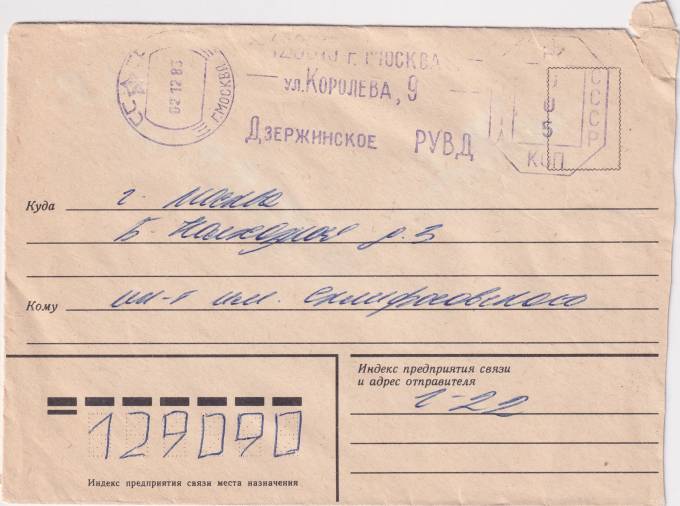 СССР
г. МОСКВА
02 12 83
г. МОСКВА
ул. КОРОЛЕВА, 9
ДЗЕРЖИНСКОЕ РУВД
05
КОП
СССР
Куда г. Москва
Б. Колхозная д. 3
Кому ин-т им. Склифосовского
Индекс предприятия связи
и адрес отправителя
1-22
129090
Индекс предприятия связи места назначения